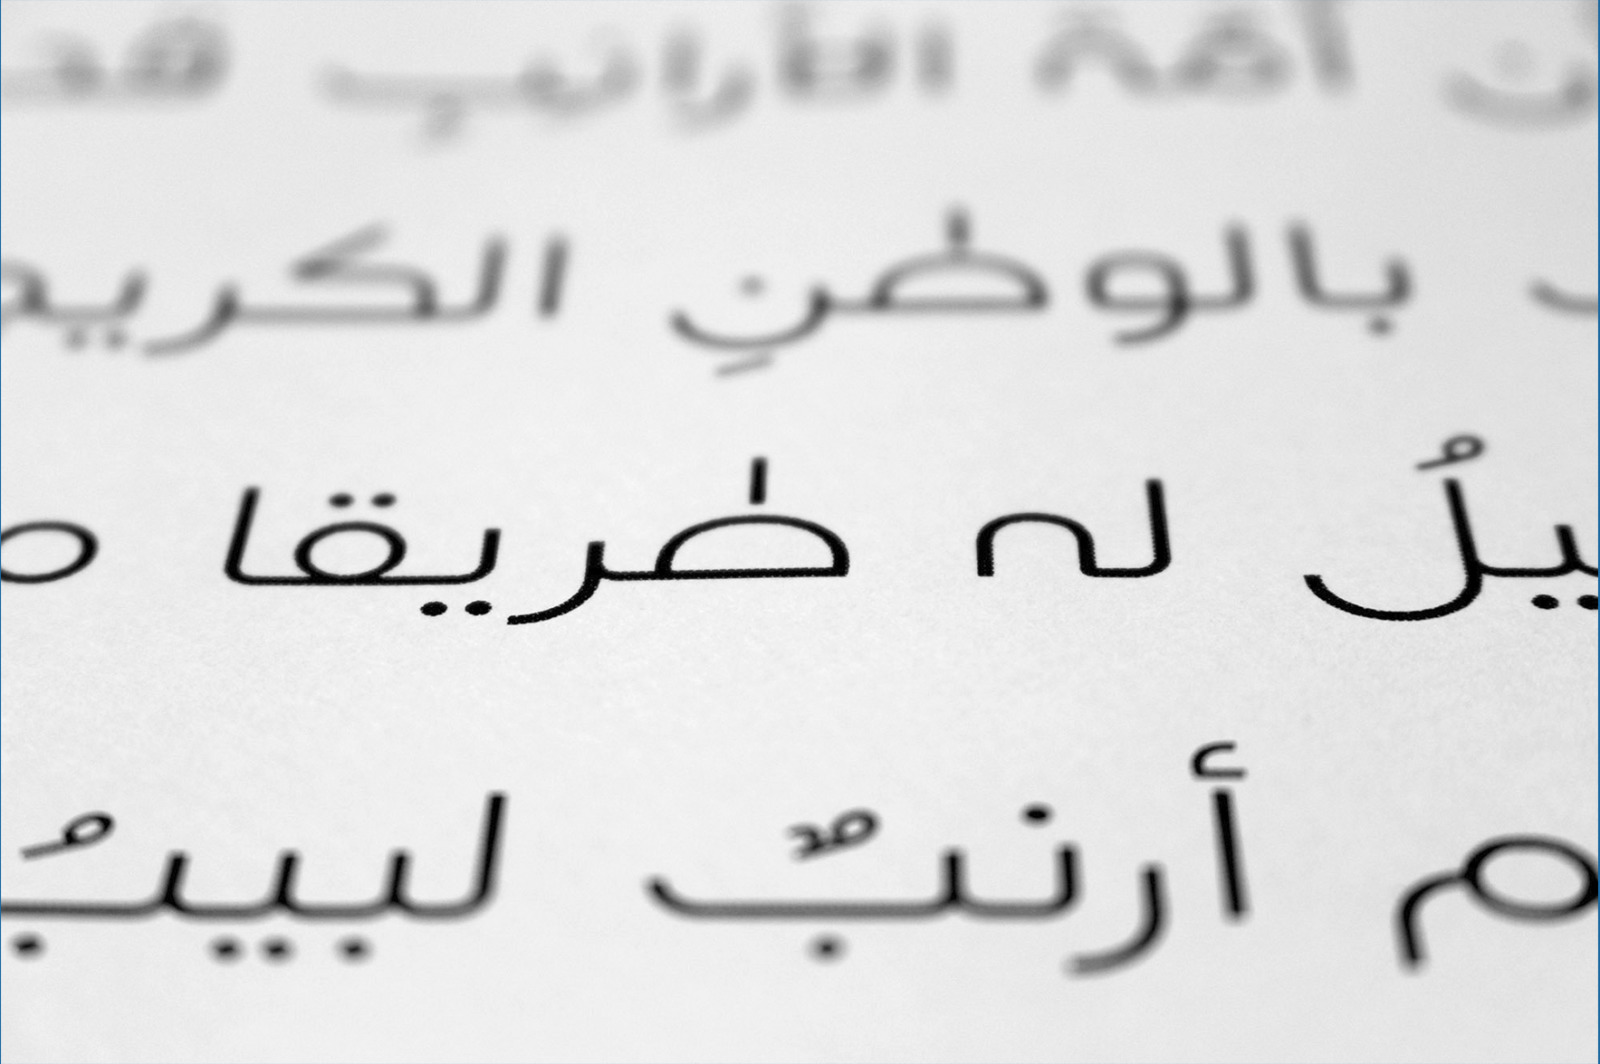 أمة الأرانب
بالوطنِ الكريم
يلُ له طريقا
م أرنبٌ لبيبُ